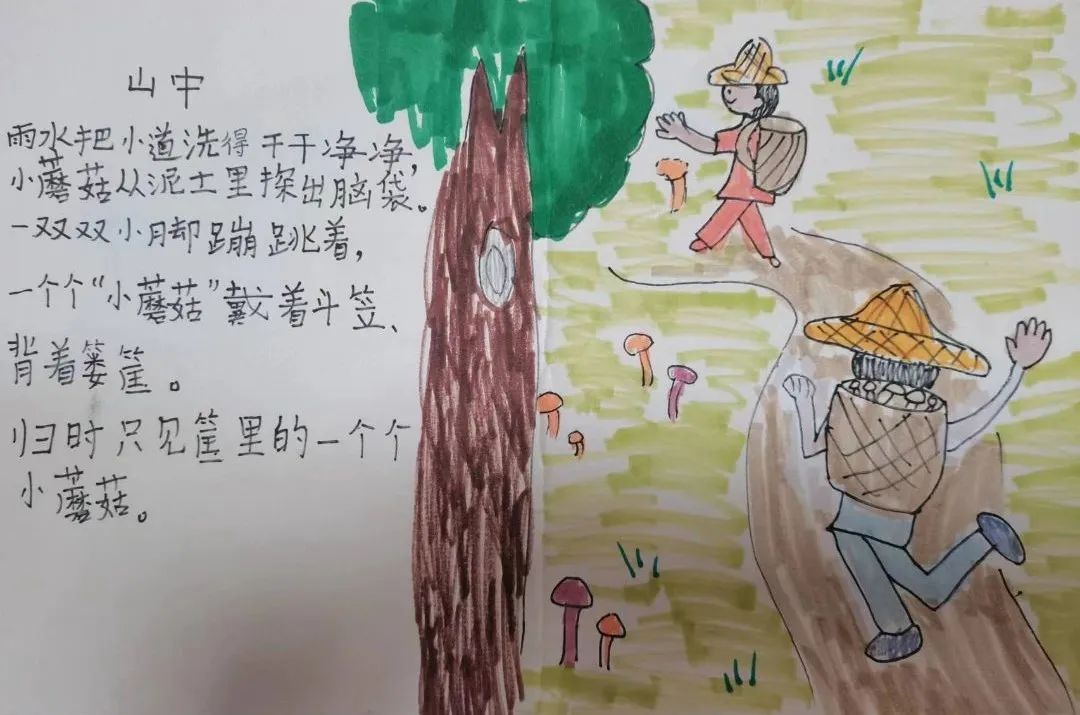 山中
雨水把小道洗得干干净净，
小蘑菇从泥土里探出脑袋。
一双双小月却蹦跳着，
一个个“小蘑菇”戴着斗笠、
背着篓筐。
归时只见筐里的一个个
小蘑菇。